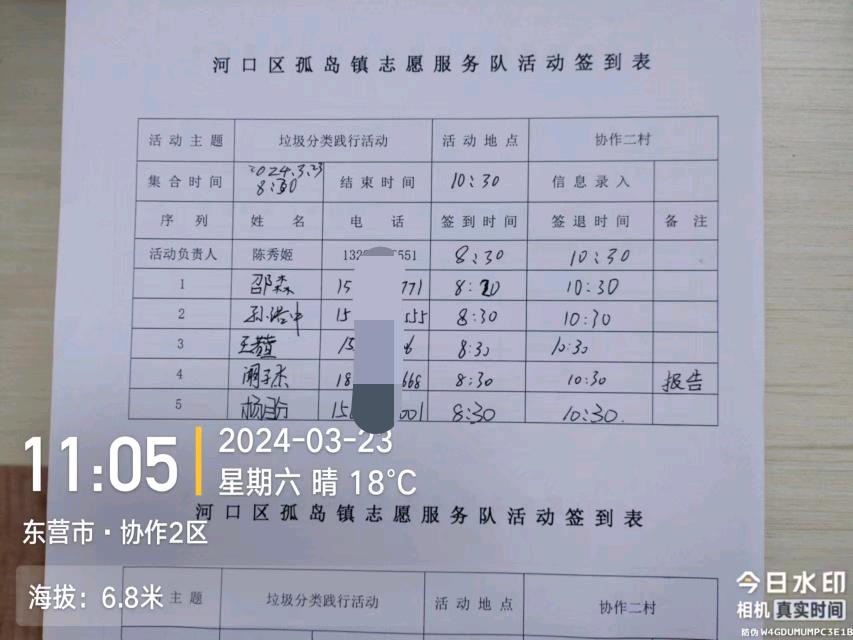 河口区孤岛镇志愿服务队活动签到表
活动主题 垃圾分类践行活动 活动地点 协作二村
集合时间 2024.3.23 8:30 结束时间 10:30 信息录入
序列 姓名 电话 签到时间 签退时间 备注
活动负责人 陈秀姬 132 551 8:30 10:30
1 邵森 15 771 8:20 10:30
2 孙浩中 15 555 8:30 10:30
3 王 15 6 8:30 10:30
4 18 668 8:30 10:30 报告
5 杨 15 001 8:30 10:30.
11:05 2024-03-23
星期六 晴 18℃
河口区孤岛镇志愿服务队活动签到表
东营市·协作2区
海拔：6.8米
主题 垃圾分类践行活动 活动地点 协作二村
今日水印
相机 真实时间
防伪 W4GDUMUMPC3E1B